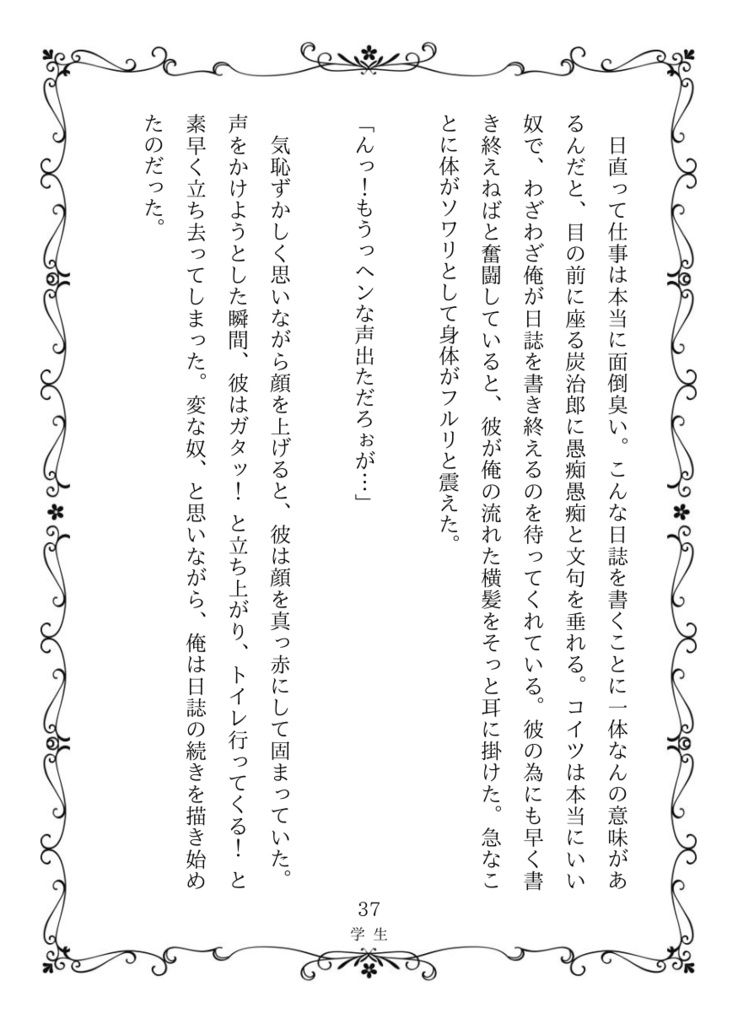 日直って仕事は本当に面倒臭い。こんな日誌を書くことに一体なんの意味があ
るんだと、目の前に座る炭治郎に愚痴愚痴と文句を垂れる。コイツは本当にいい
奴で、わざわざ俺が日誌を書き終えるのを待ってくれている。彼の為にも早く書
き終えねばと奮闘していると、彼が俺の流れた横髪をそっと耳に掛けた。急なこ
とに体がソワリとして身体がフルリと震えた。
「んっ！もうっヘンな声出ただろぉが…」
気恥ずかしく思いながら顔を上げると、彼は顔を真っ赤にして固まっていた。
声をかけようとした瞬間、彼はガタッ！ と立ち上がり、トイレ行ってくる！ と
素早く立ち去ってしまった。変な奴、と思いながら、俺は日誌の続きを描き始め
たのだった。
37
学生